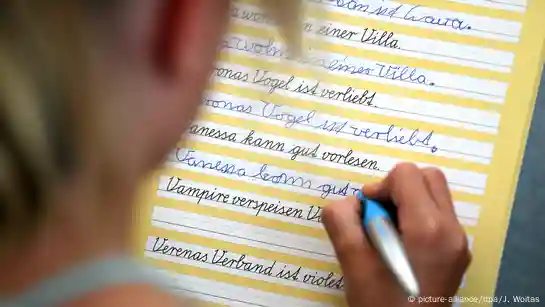 ist Laura.
einer Villa.
einer Villa.
onas Vogel ist verliebt.
onas Vogel ist verliebt.
anessa kann gut vorlesen.
Vanessa kann gut
Vampire verspeisen
Verenas Verband ist violet
© picture-alliance/dpa/J. Woitas